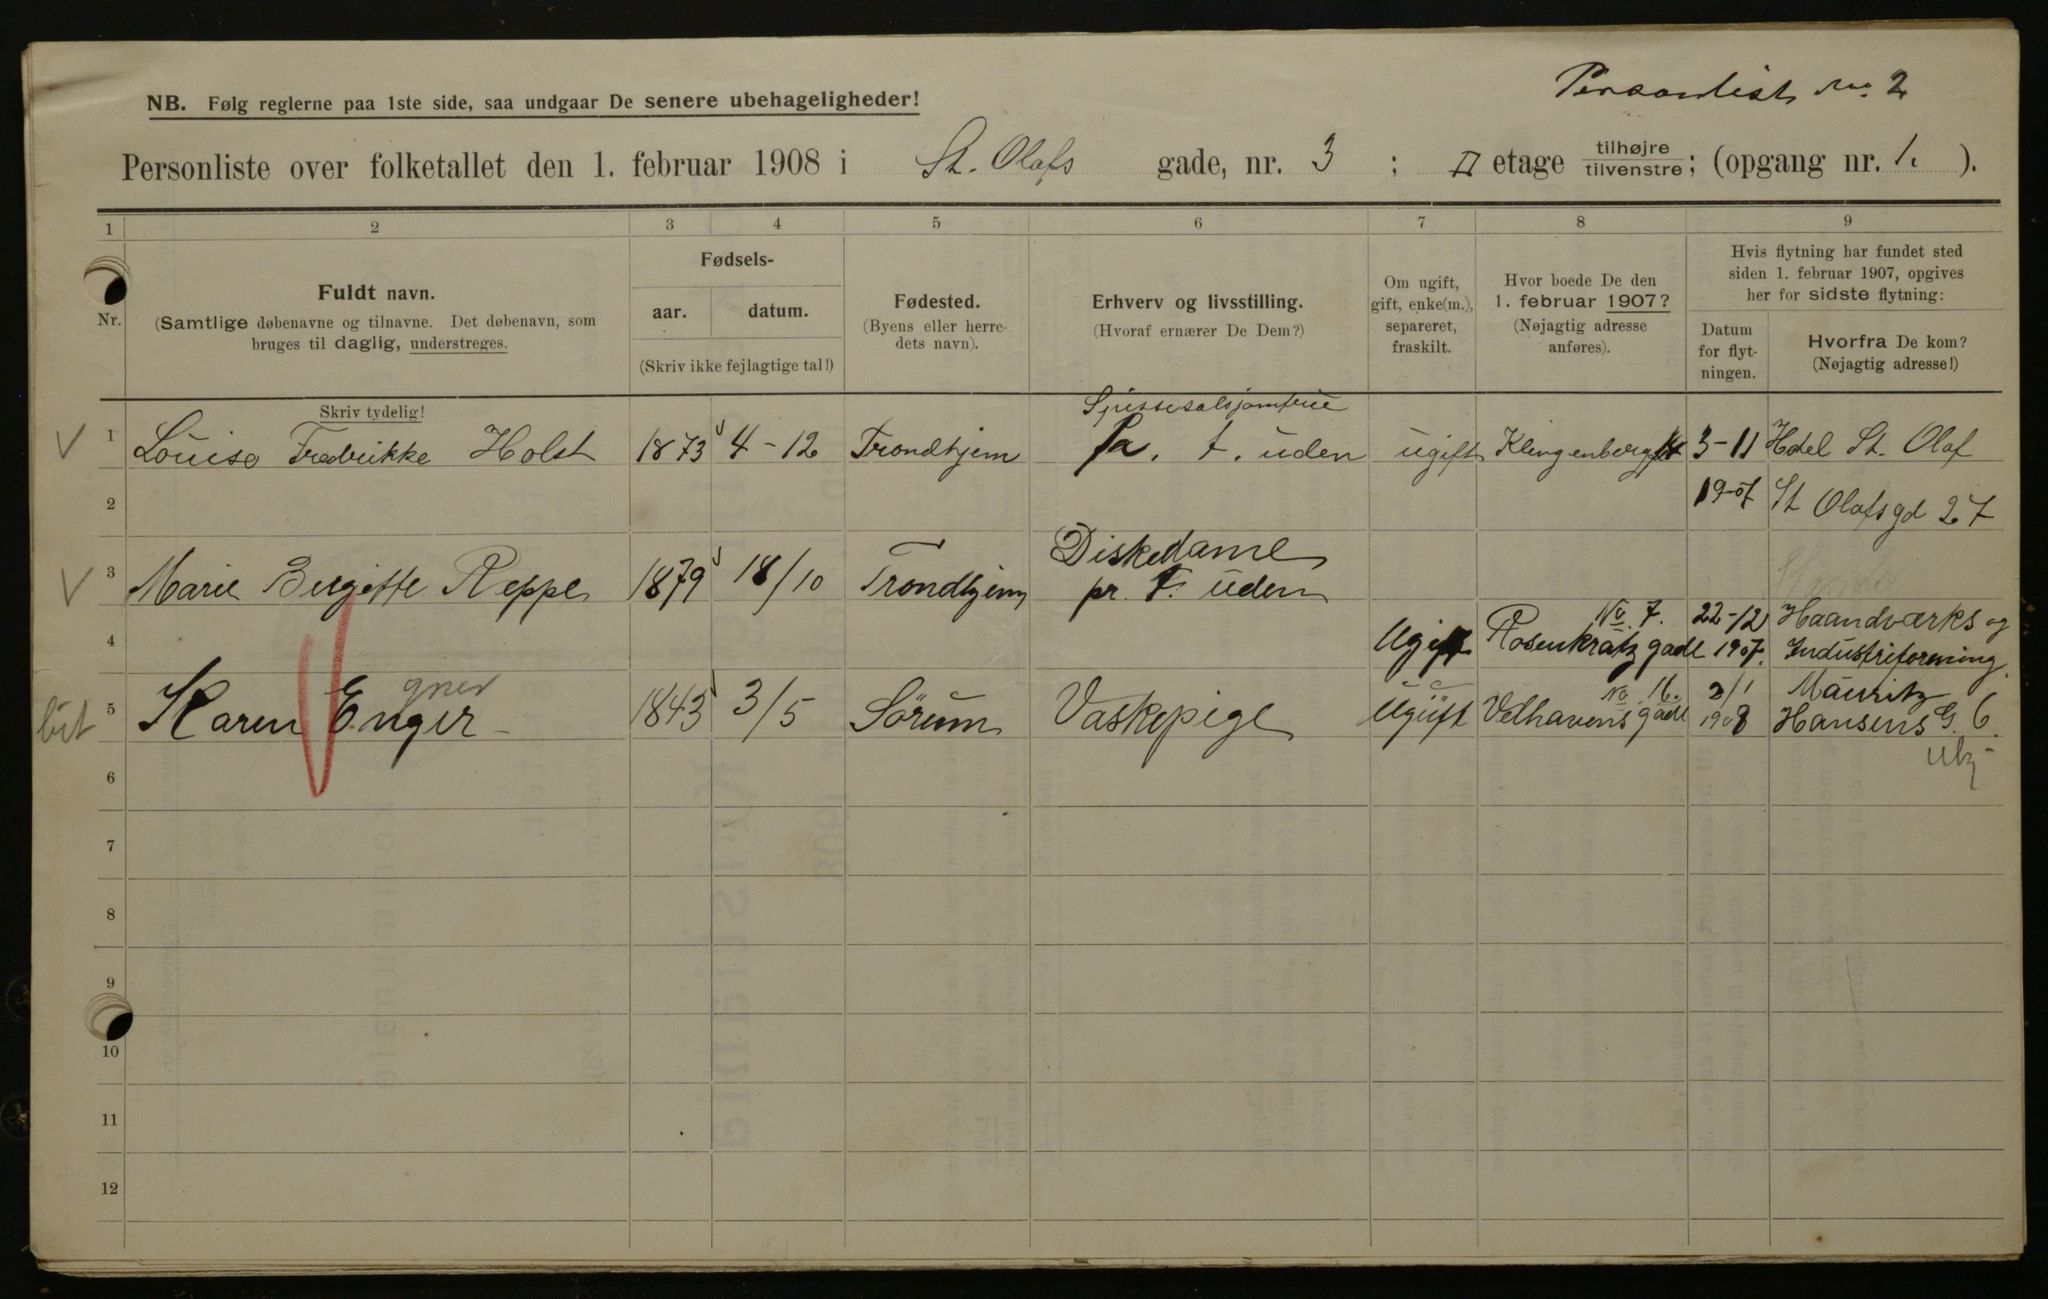 Personliste no. 2
NB. Følg reglerne paa 1ste side, saa undgaar De senere ubehageligheder!
Personliste over folketallet den 1. februar 1908 i St. Olafs gade, nr. 3 ; II etage tilhøjre tilvenstre; (opgang nr. 1. ).
1 2 3 4 5 6 7 8 9
Nr.
Fuldt navn.
(Samtlige døbenavne og tilnavne. Det døbenavn, som
bruges til daglig, understreges.
Skriv tydelig!
Fødsels-
aar. datum.
(Skriv ikke fejlagtige tal!)
Fødested.
(Byens eller herre-
dets navn).
Erhverv og livsstilling.
(Hvoraf ernærer De Dem?)
Om ugift,
gift, enke(m.),
separeret,
fraskilt.
Hvor boede De den
1. februar 1907?
(Nøjagtig adresse
anføres).
Hvis flytning har fundet sted
siden 1. februar 1907, opgives
her for sidste flytning:
Datum
for flyt-
ningen.
Hvorfra De kom?
(Nøjagtig adresse!)
Spissesalsjomfrue
1 Louise Fredrikke Holst 1873 4-12 Trondhjem t. uden ugift 3-11 Hotel St. Olaf
2 1907 St Olafsgd 27
Diskedame
3 Marie Birgitte Reppe 1879 18/10 Trondhjem pr. F. uden
No. 7. 22-12 Haandværks og
4 Ugift Rosenkratz gade 1907. Industriforening
gner No 16. 2/1 Mauritz
5 Karen Enger 1843 3/5 Sørum Vaskepige Ugift Velhavens gade 1908 Hansens G. 6.
6
7
8
9
10
11
12